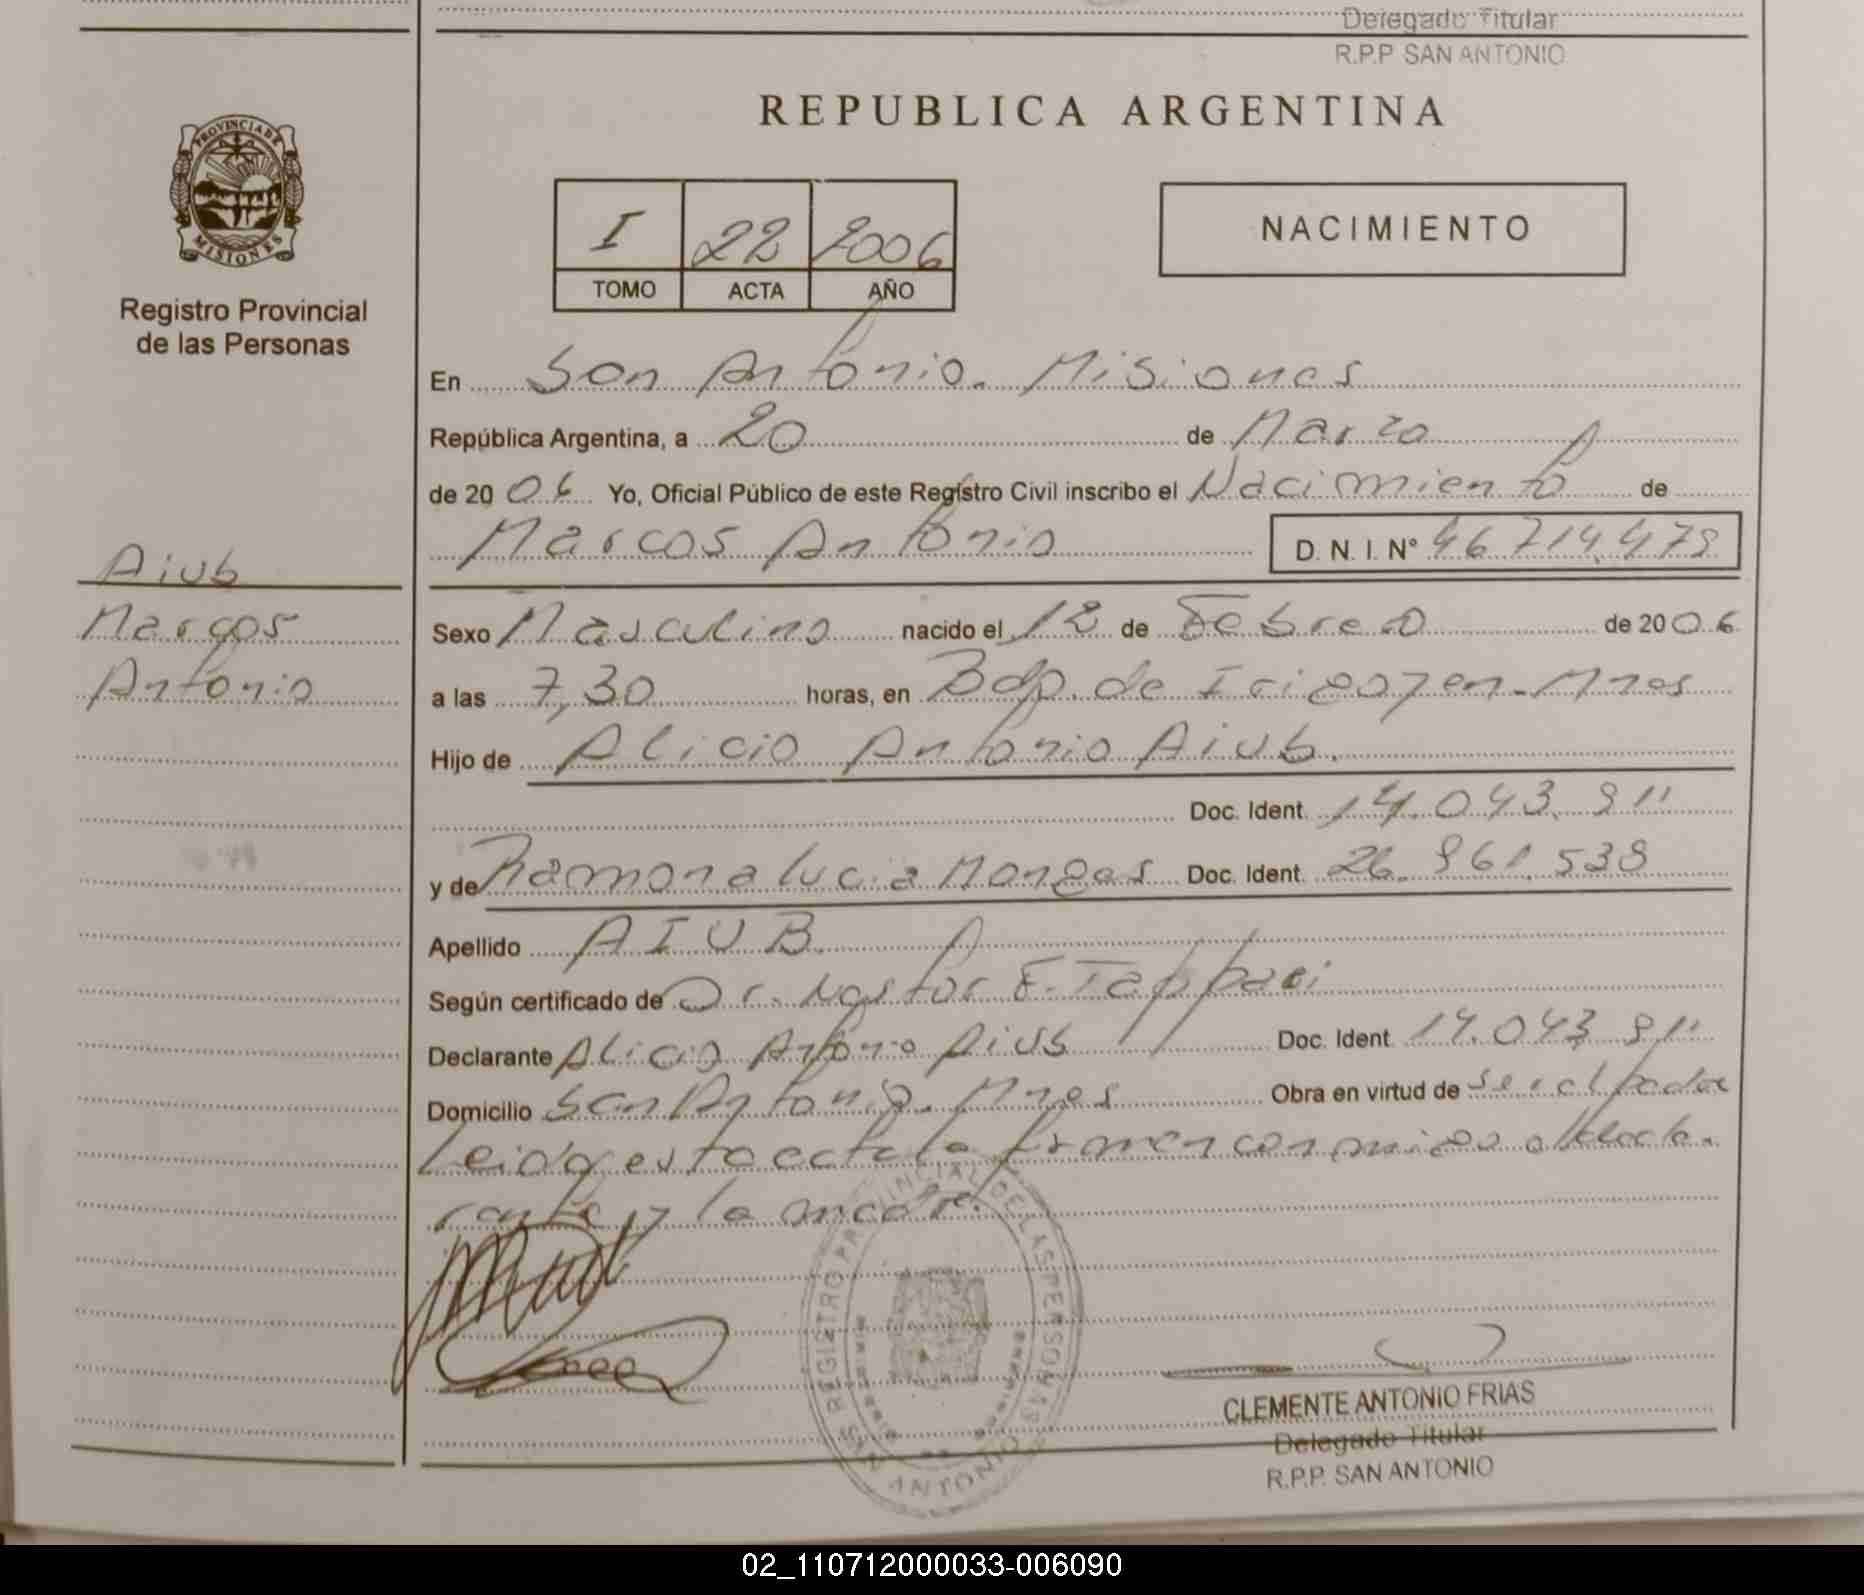 Delegado Titular
R.P.P SAN ANTONIO
REPUBLICA ARGENTINA
PROVINCIA DE
MISIONES
Registro Provincial
de las Personas
I 22 2006
TOMO ACTA AÑO
NACIMIENTO
En San Antonio. Misiones
República Argentina, a 20 de Marzo
de 20 06 Yo, Oficial Público de este Registro Civil inscribo el Nacimiento de
Marcos Antonio D. N. I. Nº 46 714.479
Aiub
Marcos
Antonio
Sexo Masculino nacido el 12 de Febrero de 20 06
a las 7,30 horas, en Bdo. de Irigoyen - Mnes
Hijo de Alicio Antonio Aiub.
Doc. Ident. 14.043.911
y de Ramona Lucia Monges Doc. Ident. 26.961.539
Apellido AIUB
Según certificado de Dr. Nestor F.
Declarante Alicio Antonio Aiub Doc. Ident. 14.043.911
Domicilio San Antonio. Mnes Obra en virtud de ser el padre
Leida esta acta la firman conmigo el decla-
rante y la madre.
REGISTRO PROVINCIAL DE LAS PERSONAS
SAN ANTONIO
CLEMENTE ANTONIO FRIAS
Delegado Titular
R.P.P. SAN ANTONIO
02_110712000033-006090